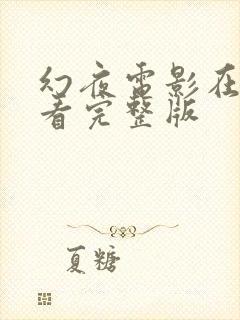 幻夜雷影在
看完整版
夏糖